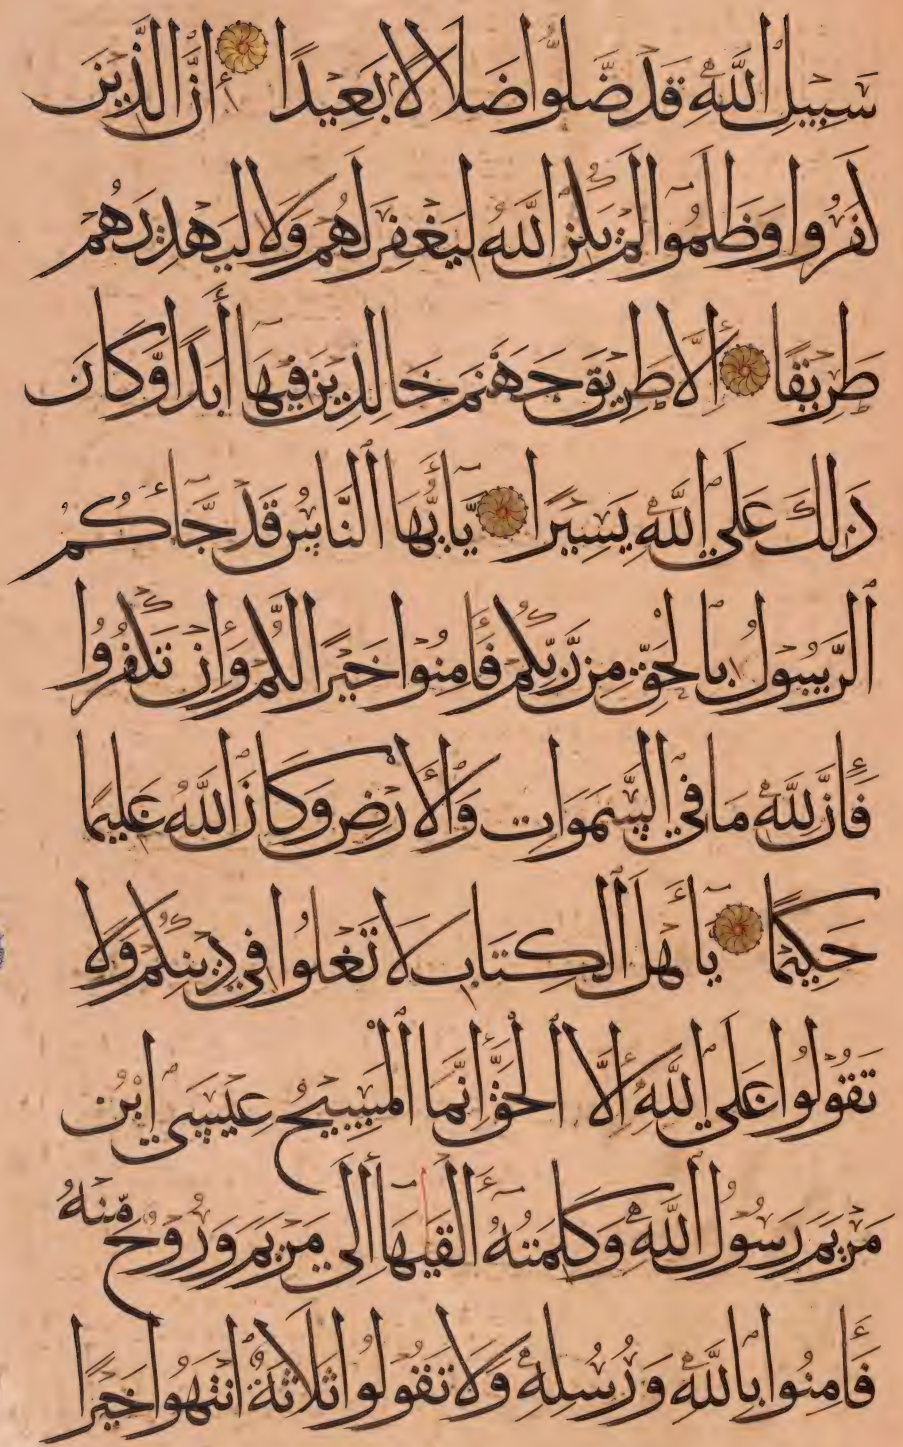 سَبِيلِ ٱللَّهِ قَدْ ضَلُّوا ضَلَالًا بَعِيدًا إِنَّ الَّذِينَ
كَفَرُوا وَظَلَمُوا لَمْ يَكُنِ ٱللَّهُ لِيَغْفِرَ لَهُمْ وَلَا لِيَهْدِيَهُمْ
طَرِيقًا إِلَّا طَرِيقَ جَهَنَّمَ خَالِدِينَ فِيهَا أَبَدًا وَّكَانَ
ذَٰلِكَ عَلَى ٱللَّهِ يَسِيرًا يَٰٓأَيُّهَا ٱلنَّاسُ قَدْ جَّآءَكُمُ
ٱلرَّسُولُ بِٱلْحَقِّ مِن رَّبِّكُمْ فَـَٔامِنُوا خَيْرًا لَّكُمْ وَإِن تَكْفُرُوا
فَإِنَّ لِلَّهِ مَا فِي ٱلسَّمَوَاتِ وَٱلْأَرْضِ وَكَانَ ٱللَّهُ عَلِيمًا
حَكِيمًا يَٰٓأَهْلَ ٱلْكِتَابِ لَا تَغْلُوا فِي دِينِكُمْ وَلَا
تَقُولُوا عَلَى ٱللَّهِ إِلَّا ٱلْحَقَّ إِنَّمَا ٱلْمَسِيحُ عِيسَى ٱبْنُ
مَرْيَمَ رَسُولُ ٱللَّهِ وَكَلِمَتُهُ أَلْقَىٰهَا إِلَىٰ مَرْيَمَ وَرُوحٌ مِّنْهُ
فَـَٔامِنُوا بِٱللَّهِ وَرُسُلِهِ وَلَا تَقُولُوا ثَلَاثَةٌ ٱنْتَهُوا خَيْرًا